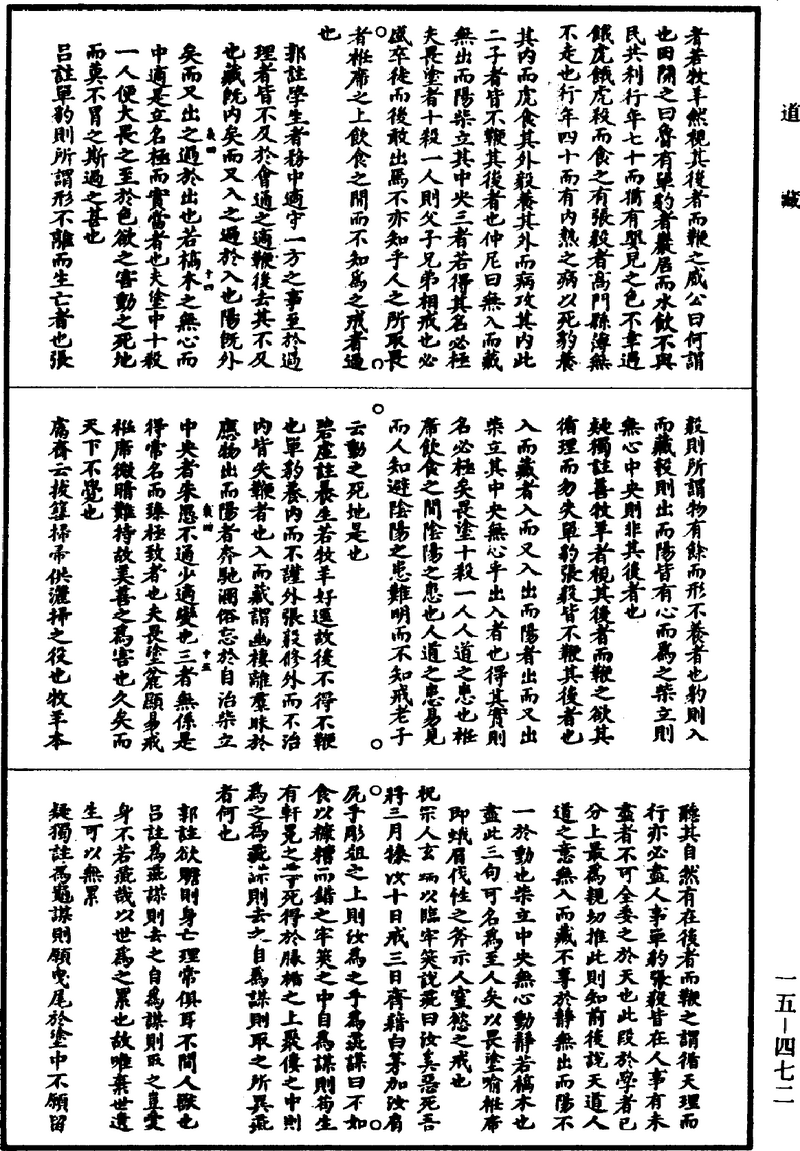 道藏
者若牧羊然視其後者而鞭之威公曰何謂
也田開之曰魯有單豹者巖居而水飲不與
民共利行年七十而猶有嬰兒之色不幸遇
餓虎餓虎殺而食之有張毅者高門縣薄無
不走也行年四十而有內熱之病以死豹養
其內而虎食其外毅養其外而病攻其內此
二子者皆不鞭其後者也仲尼曰無入而藏
無出而陽柴立其中央三者若得其名必極
夫畏塗者十殺一人則父子兄弟相戒也必
盛卒徒而後敢出焉不亦知乎人之所取畏
者袵席之上飲食之間而不知為之戒者過
也
郭註學生者務中適守一方之事至於過
理者皆不及於會通之適鞭後去其不及
也藏既內矣而又入之過於入也陽既外
十四
矣而又出之過於出也若槁木之無心而
中適是立名極而實當者也夫塗中十殺
一人便大畏之至於色欲之害動之死地
而莫不冒之斯過之甚也
呂註單豹則所謂形不離而生亡者也張
毅則所謂物有餘而形不養者也豹則入
而藏毅則出而陽皆有心而為之柴立則
無心中央則非其後者也
疑獨註善牧羊者視其後者而鞭之欲其
循理而勿失單豹張毅皆不鞭其後者也
入而藏者入而又入出而陽者出而又出
柴立其中央無心乎出入者也得其實則
名必極矣畏塗十殺一人人道之患也袵
席飲食之間陰陽之患也人道之患易見
而人知避陰陽之患難明而不知戒老子
云動之死地是也
碧虛註養生若牧羊好還故後不得不鞭
也單豹養內而不謹外張毅修外而不治
內皆失鞭者也入而藏謂幽棲離羣昧於
應物出而陽者奔馳溷俗忘於自治柴立
十五
中央者朱愚不適少適變也三者無係是
得常名而臻極致者也夫畏塗麄顯易戒
袵席微暗難持故美善之為害也久矣而
天下不覺也
鬳齋云拔篲掃帚供灑掃之役也牧羊本
聽其自然有在後者而鞭之謂循天理而
行亦必盡人事單豹張毅皆在人事有未
盡者不可全委之於天也此段於學者已
分上最為親切推此則知前後說天道人
道之意無入而藏不專於靜無出而陽不
一於動也柴立中央無心動靜若槁木也
盡此三句可名為至人矣以畏塗喻袵席
即蛾眉伐性之斧示人窒慾之戒也
祝宗人玄端以臨牢筴說彘曰汝奚惡死吾
將三月𤙡汝十日戒三日齊藉白茅加汝肩
尻乎彫俎之上則汝為之乎為彘謀曰不如
食以糠糟而錯之牢筴之中自為謀則苟生
有軒冕之尊死得於腞楯之上聚僂之中則
為之為彘謀則去之自為謀則取之所異彘
者何也
郭註欲贍則身亡理常俱耳不間人獸也
呂註為彘謀則去之自為謀則取之豈愛
身不若彘哉以世為之累也故唯棄世遺
生可以無累
疑獨註為龜謀則願曳尾於塗中不願留
一五—四七二